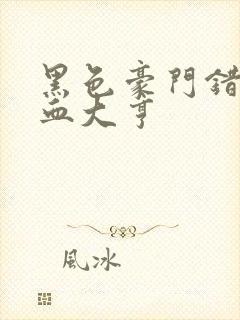 黑色豪門錯
血大亨
風冰